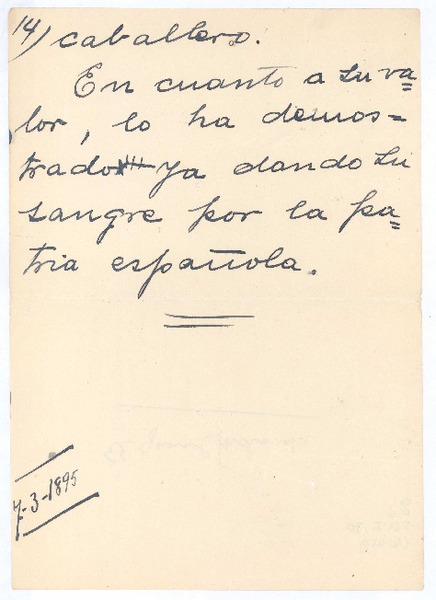 14) caballero.
En cuanto a su va=
lor, lo ha demos=
trado ya dando su
sangre por la pa=
tria española.
7-3-1895